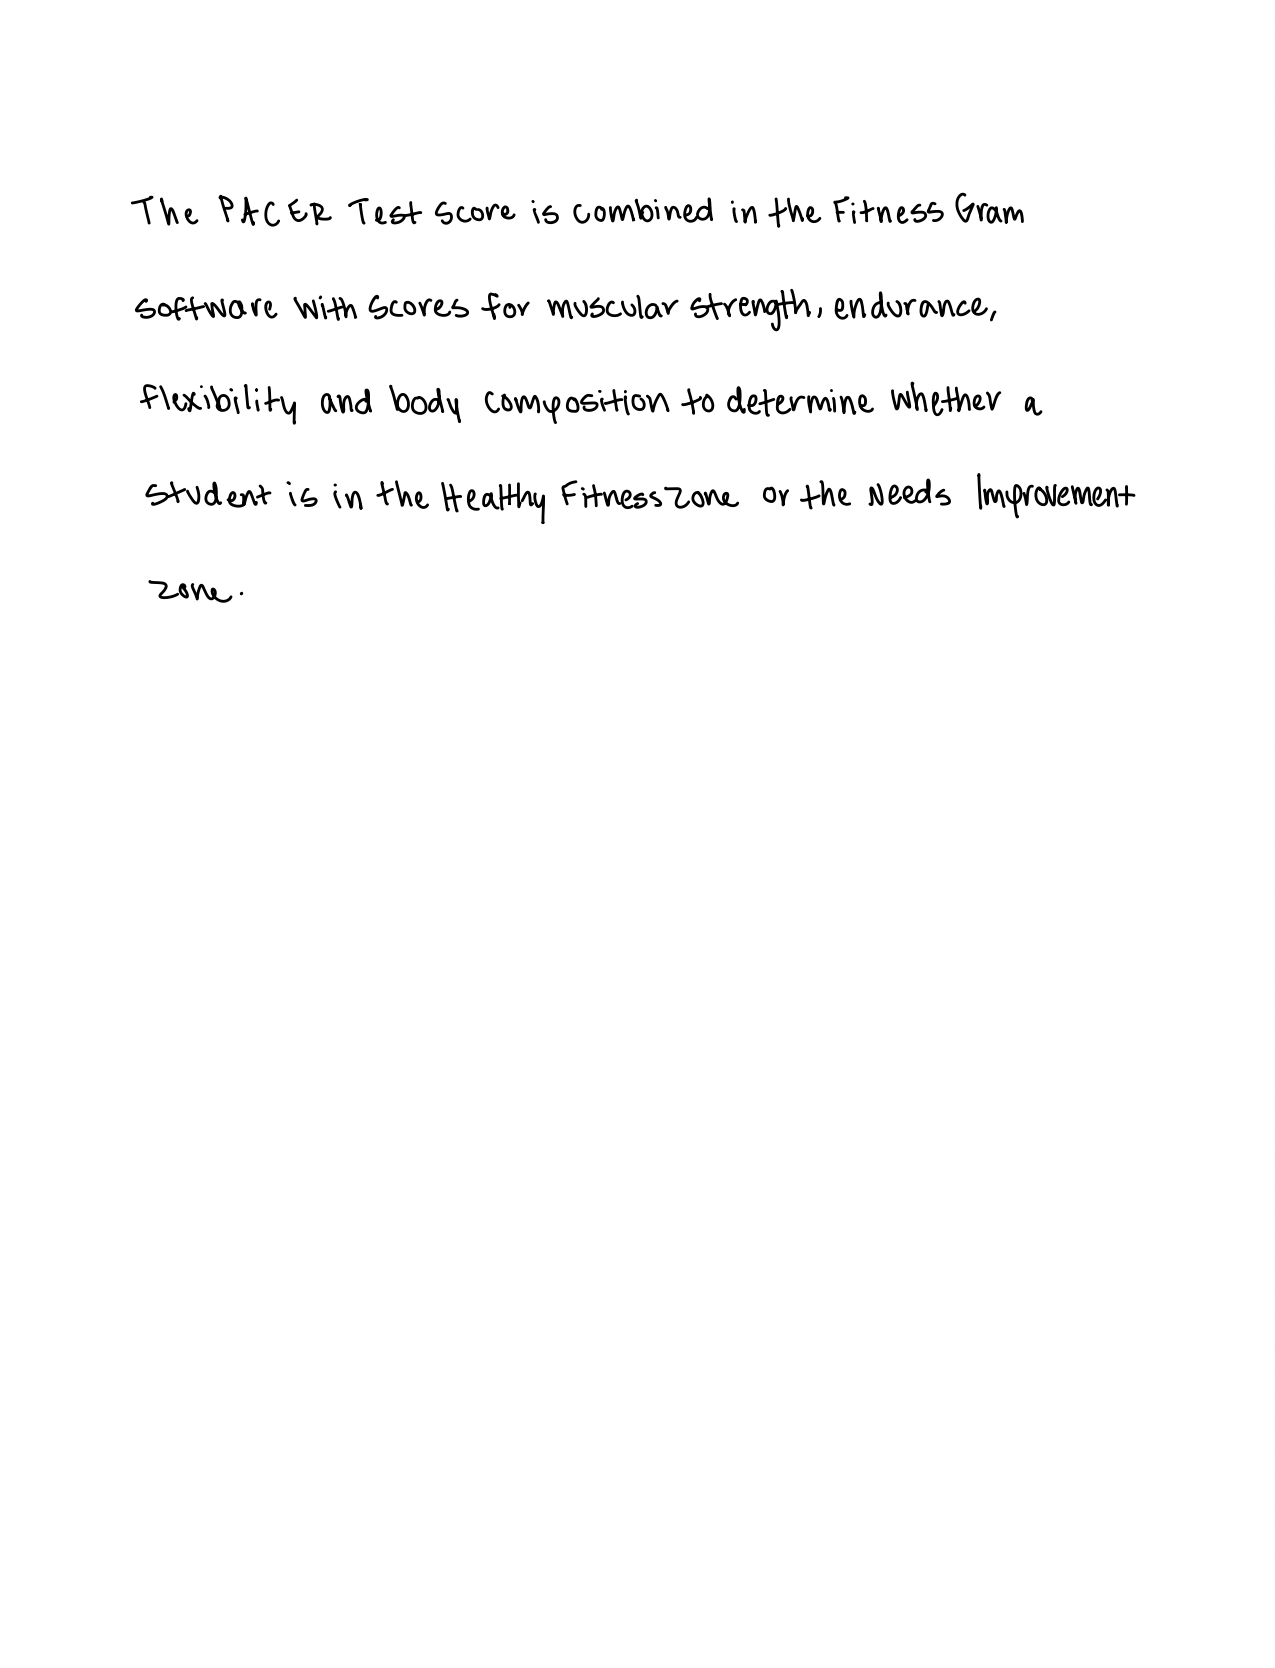 The PACER Test score is combined in the Fitness Gram
software with scores for muscular strength, endurance,
flexibility and body composition to determine whether a
student is in the Healthy Fitness Zone or the Needs Improvement
zone.